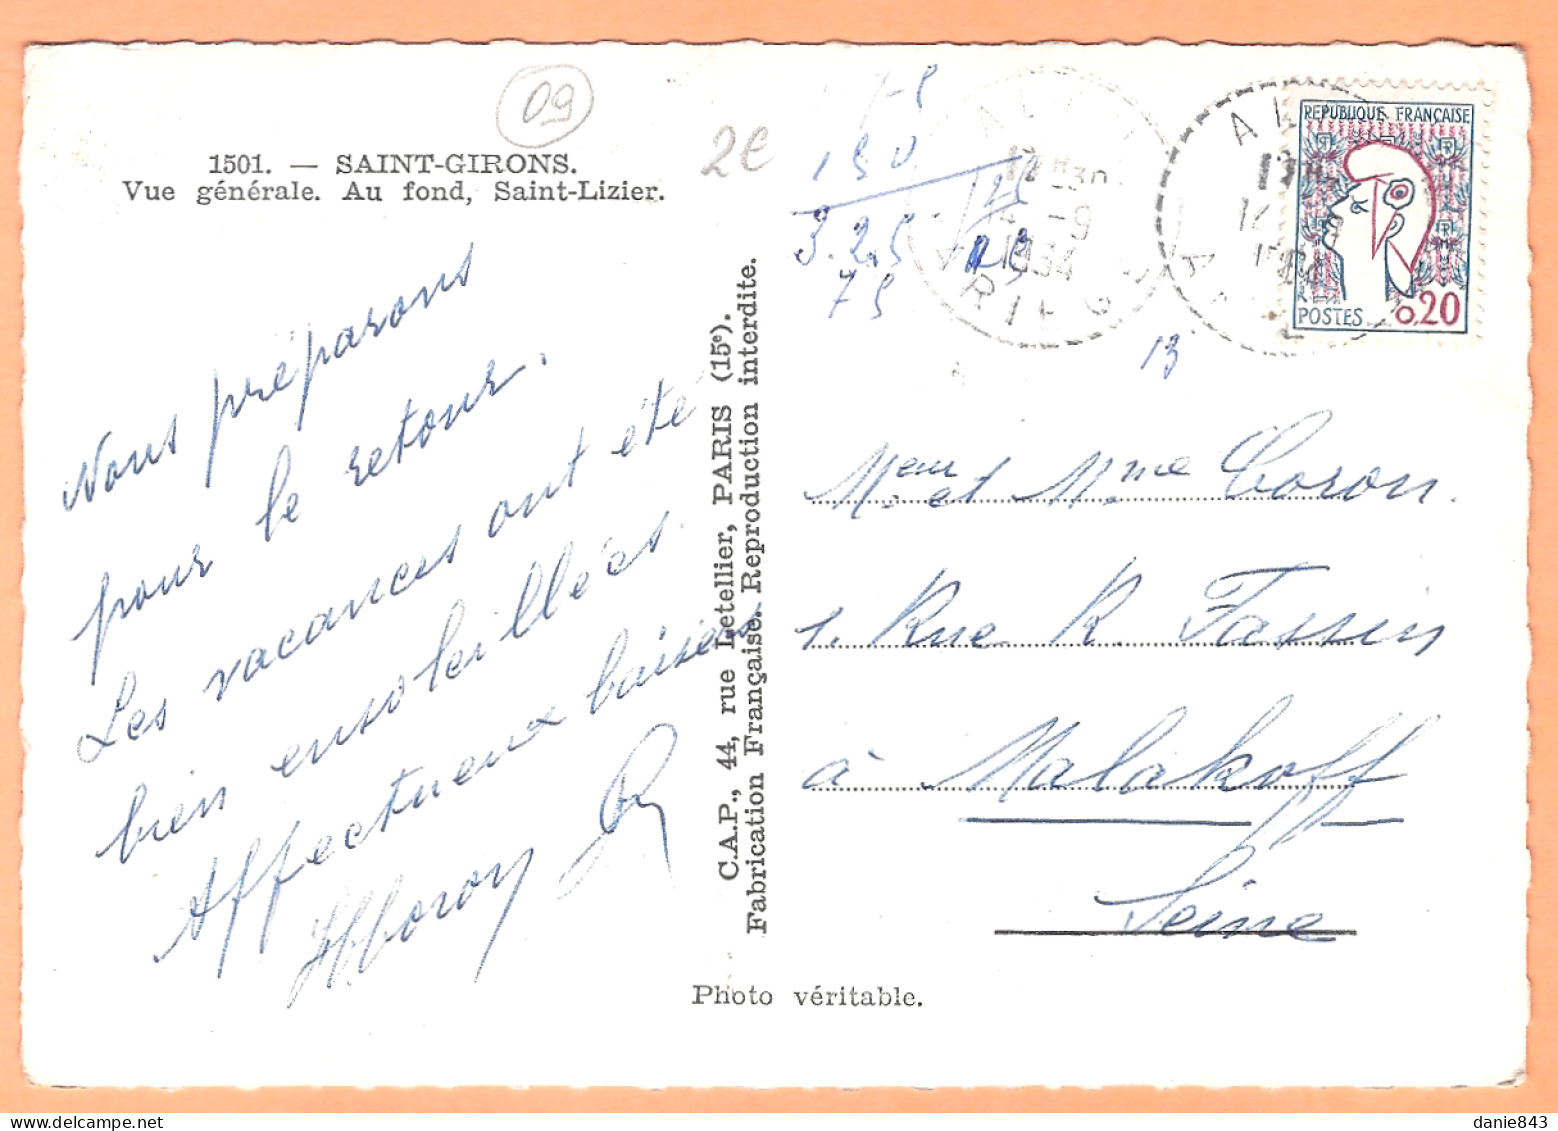 09
1501. — SAINT-GIRONS.
Vue générale. Au fond, Saint-Lizier.
2€
150
3.25
75
13
17 30
-9
REPUBLIQUE FRANÇAISE
POSTES 0,20
Nous préparons
pour le retour.
Les vacances ont été
bien ensoleillées.
Affectueux baisers
C.A.P., 44, rue Letellier, PARIS (15e).
Fabrication Française. Reproduction interdite.
Meur et Mme Coron.
1. Rue R. Fassin
à Malakoff
Seine
Photo véritable.
danie843